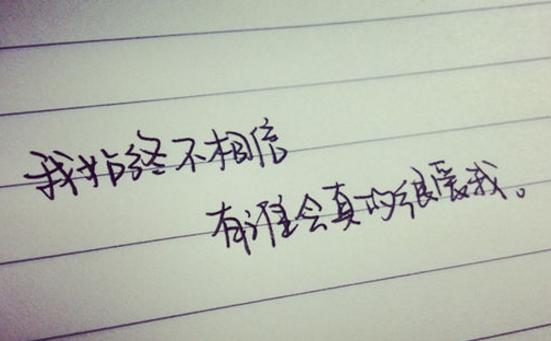 我始终不相信
有谁会真的很爱我。